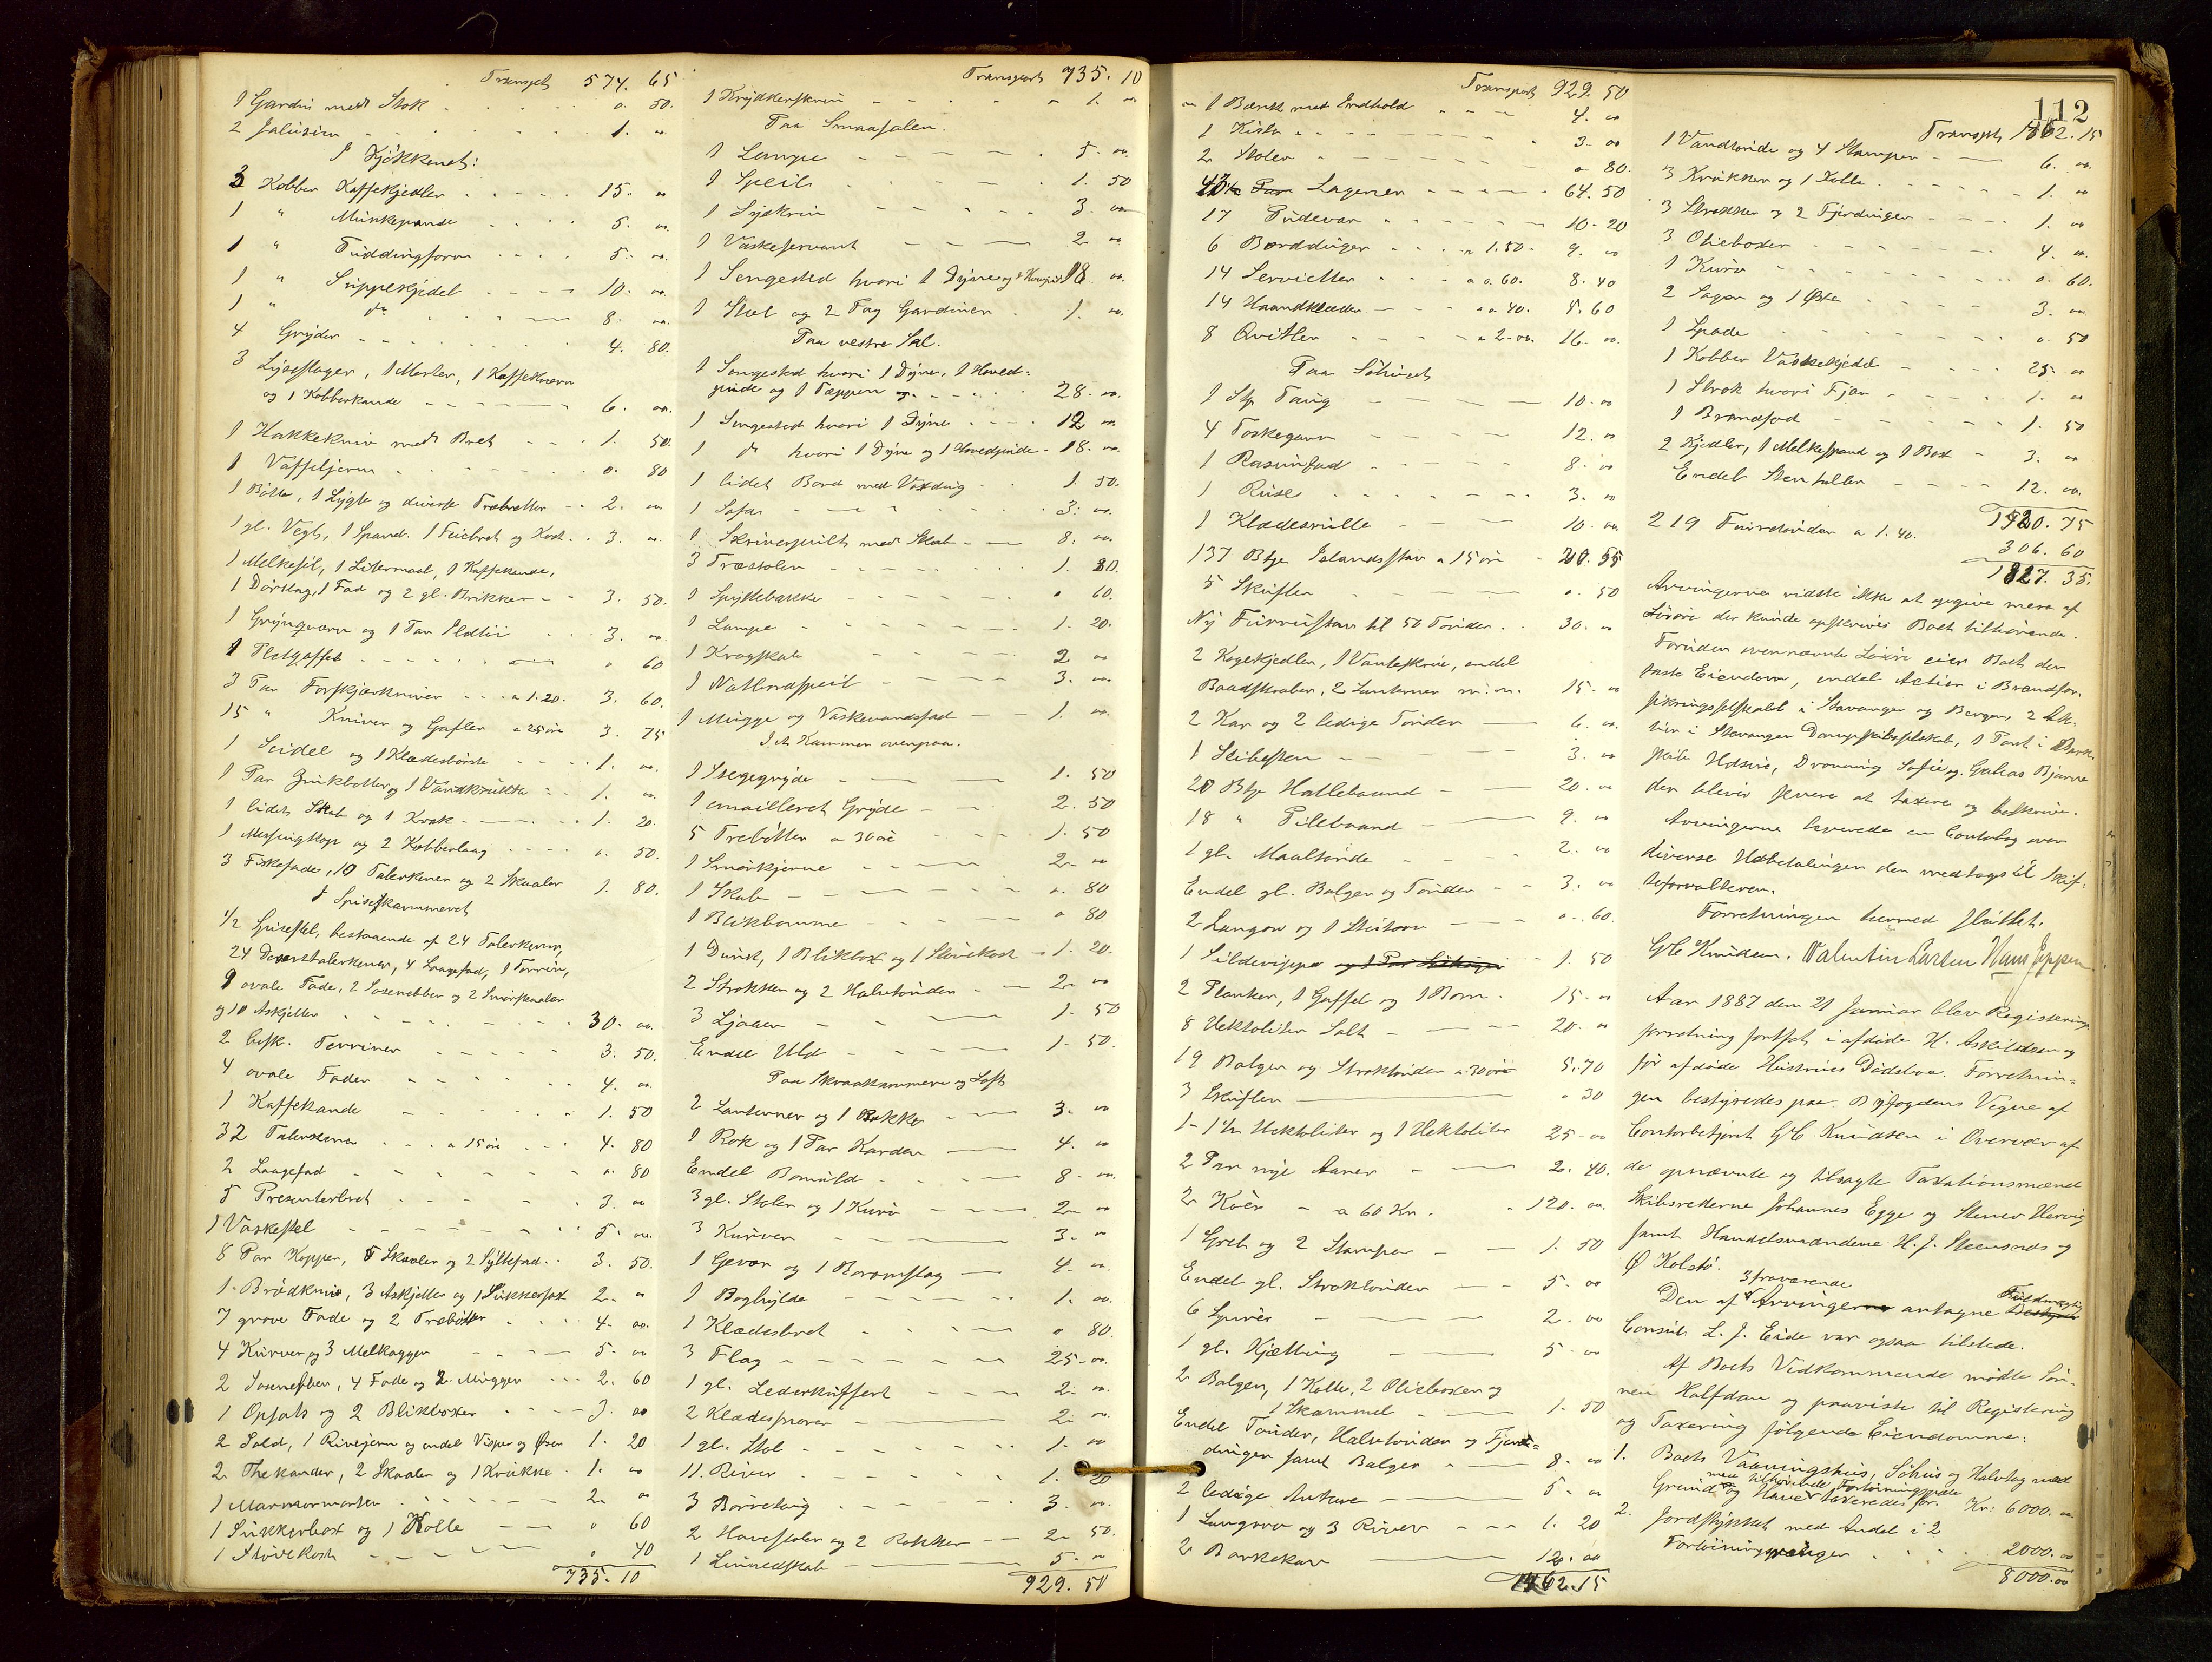 Transpt 574. 65
1 Gardin med Stok o. 50.
2 Jalusier 1. oo
I Kjøkkenet:
3 Kobber Kaffekjedler 15. oo
1 " Munkepande 5. oo.
1 " Puddingform 5. oo.
1 " Suppekjedel 10. oo.
1 " do 8. oo.
4 Gryder 4. 80.
3 Lysestager, 1 Morter, 1 Kaffekværn
og 1 Kobberkande 6. oo.
1 Hakkekniv med Bret 1. 50.
1 Vaffeljern o. 80
1 Bøtte, 1 Lygte og diverse Træbretter 2. oo
1 gl. Vegt, 1 Spand. 1 Feiebret og Kost 3. oo
1 Melkesil, 1 Litermaal, 1 Kaffekande,
1 Dørslag, 1 Fad og 2 gl. Brikker 3. 50.
1 Grynqværn og 1 Par Ildtøi 3. oo.
1 Flotgaffel o 60
3 Par Forskjærkniver a 1.20. 3. 60.
15 " Kniver og Gafler a 25 øre 3. 75
1 Seidel og 1 Klædesbørste 1. oo.
1 Par Zinkbøtter og 1 Vandkrukke 1. oo.
1 lidet Skab og 1 Krak 1. 20.
1 Messingkop og 2 Kobberlaag o. 50.
3 Fiskefade, 10 Talerkener og 2 Skaaler 1. 80.
I Spisekammeret
1/2 Spisestel, bestaaende af 24 Talerkener,
24 Deserttalerkener, 4 Laagefad, 1 Terrin,
9 ovale Fade, 2 Sosenebber og 2 Smørskaaler
og 10 Askjetter 30. oo.
2 besk. Terriner 3. 50.
4 ovale Fader 4. oo
1 Kaffekande 1. 50
32 Talerkener a 15 øre 4. 80
2 Laagefad o. 80
5 Presenterbret 3. oo
1 Vaskestel 5. oo.
8 Par Kopper, 5 Skaaler og 2 Syltefad 3. 50.
1 Brødkniv, 3 Askjetter og 1 Sukkerfat 2. o
7 grove Fade og 2 Træbøtter 4. oo.
4 Kurver og 3 Melkagger 5. oo
2 Sosenebber, 4 Fade og 2 Mugger 2. 60
1 Opsats og 2 Blikbøxer 3. oo
2 Sold, 1 Rivejern og endel Visper og Øser 1. 20
2 Thekander, 2 Skaaler og 1 Krukke 1. oo
1 Marmormorter 2. oo
1 Sukkerkost og 1 Kolle o 60
1 Støvekost o 40
735. 10

Transport 735. 10
1 Krydderskrin 1. oo
Paa Smaasalen.
1 Lampe 5. oo.
1 Speil 1. 50
1 Syskrin 3. oo
1 Vaskeservant 2 oo
1 Sengested hvori 1 Dyne og 1 Hovedp. 18. oo.
1 Stol og 2 Fag Gardiner 1. oo.
Paa vestre Sal.
1 Sengested hvori 1 Dyne, 1 Hoved-
pude og 1 Tæppen 28. oo.
1 Sengested hvori 1 Dyne 12 oo
1 do hvori 1 Dyne og 1 Hovedpude 18. oo.
1 lidet Bord med Voxdug 1. 50.
1 Sofa 3. oo.
1 Skriverpult med Skab 8. oo.
3 Træstoler 1. 80.
1 Spyttebakke o 60.
1 Lampe 1. 20.
1 Krogskab 2 oo
1 Natbordspeil 3. oo.
1 Mugge og Vaskevandsfad 1. oo.
I et Kammer ovenpaa.
1 Stegegryde 1. 50
1 emailleret Gryde 2. 50
5 Trebøtter a 30 øre 1. 50
1 Smørkjerne 2. oo
1 Skab o. 80
1 Blikkomme o 80
1 Dunk, 1 Blikbox og 1 Støvekost 1. 20.
2 Strokker og 2 Halvtønder 2. oo
3 Ljaaer 1. 50
Endel Uld 1. 50.
Paa Skraakammere og Loft
2 Lanterner og 1 Bakke 3. oo
1 Rok og 1 Par Karder 4. oo
Endel Bomuld 8. oo.
3 gl. Stoler og 1 Kurv 2. oo
3 Kurver 3. oo
1 Gevær og 1 Baromstag 4. oo.
1 Boghylde 1. oo.
1 Klædesbret o 80.
3 Flag 25. oo.
1 gl. Læderkuffert 2. oo.
2 Klædesnorer 2. oo.
1 gl. Stol 1. oo
11. River 1. 20
3 Børretøig 3. oo.
2 Havestoler og 2 Rokker 2. 50.
1 Linnedskab 5. oo
929. 50

Transport 929. 50
1 Bænk med Indhold 4. oo
1 Kiste 3. oo
2 Stoler o 80.
43 Lagener 64. 50
17 Pudevar 10. 20
6 Borddúger a 1.50. 9. oo
14 Servietter a o.60. 8. 40
14 Haandklæder a o 40. 5. 60
8 Qvitler a 2.oo. 16. oo.
Paa Søhuset
1 Stp Taug 10. oo
4 Toskegarn 12. oo
1 Rasunfad 8. oo
1 Ruse 3. oo
1 Klædesrulle 10. oo
137 Btge Islandsstav a 15 øre 20. 55
5 Skuffer o. 50
Ny Furrustav til 50 Tønder 30. oo
2 Kogekjedler, 1 Vanteskrue, endel
Baadskraber, 2 Lanterner m.m. 15. oo
2 Kar og 2 ledige Tønder 6. oo.
1 Slibesten 3. oo
20 Btge Hatlebaand 20. oo
18 " Pilebaand 9. oo
1 gl. Maaltønde 2. oo
Endel gl. Balger og Tønder 3. oo
2 Langer og 1 Skutorv o. 60.
1 Sildevippe 1. 50
2 Planker, 1 Gaffel og 1 Bom 15. oo
8 Hektoliter Salt 20. oo
19 Balger og Stroktønder a 30 øre 5. 70
3 Skuffer o 30
1-1/2 Hektoliter og 1 Hektoliter 25. oo
2 Par nye Aarer 2. 40.
2 Køer a 60 Kr. 120. oo.
1 Greb og 2 Stamper 1. 50
Endel gl. Stroktønder 5. oo
6 Spurer 2. oo
1 gl. Kjætting 5. oo
2 Balger, 1 Kolle, 2 Oliebøxer og
1 Skammel 1. 50
Endel Tønder, Halvtønder og Fjer-
dinger samt Balger 8. oo
2 ledige Ankere 5. oo
1 Langorv og 3 River 1. 20
2 Barkekar 12. oo
1462.15

112
Transpt 1462.15
1 Vandtønde og 4 Stamper 6. oo.
3 Krukker og 1 Kolle 1. oo
3 Strokker og 2 Fjerdinger 1. oo
3 Oliebøxer 4. oo.
1 Kurv o. 60.
2 Sager og 1 Øxe 3. oo
1 Spade o. 50
1 Kobber Vaskekjedel 25. oo
1 Strok hvori Fjær 1. oo
1 Brandfad 1. 50
2 Kjedler, 1 Melkespand og 1 Box 3. oo
Endel Stenheller 12. oo.
1520. 75
219 Furutønder a 1. 40. 306. 60
1827. 35.
Arvingerne vidste ikke at opgive mere af
Løsøre der kunde opskrives Boet tilhørende.
Foruden ovennævnte Løsøre eier Boet den
faste Eiendom, endel Actier i Brandfor-
sikringsselskabet i Stavanger og Bergen, 2 Ak-
tier i Stavanger Dampskibsselskab, 1 Part i Bark-
skib Hdsvii, Dronning Sofie og Galeas Bjarne
der blever senere at taxere og beskrive.
Arvingerne leverede en Contobog over
diverse Udbetalinger den medtages til Skif-
teforvalteren.
Forretningen hermed sluttet.
G C Knudsen. Valentin Larsen Hans Jeppesen.
Aar 1887 den 21 Januar blev Registerings
forretning fortsat i afdøde H. Askildsen og
før afdøde Hustrues Dødsbo. Forretnin-
gen bestyredes paa Byfogdens Vegne af
Contorbetjent G C Knudsen i Overvær af
de opnævnte og tilsagte Taxationsmænd
Skibsrederne Johannes Egge og Stener Hervig
samt Handelsmændene H. J. Steensnæs og
Ø Kolstø.
3 fraværende
Den af Arvinger antagne Fuldmægtig
Consul L. J. Eide var ogsaa tilstede.
Af Boets Vedkommende mødte Søn-
nen Halfdan og paaviste til Registering
og Taxering følgende Eiendomme:
1. Boets Vaaningshus, Søhus og Halvtag med
med tilhørende Fortøiningspæle
Grund og Have taxeredes for. Kr: 6000. oo
2. Jordstykket med Andel i 2
Fortøiningspæler 2000. oo
8000. oo